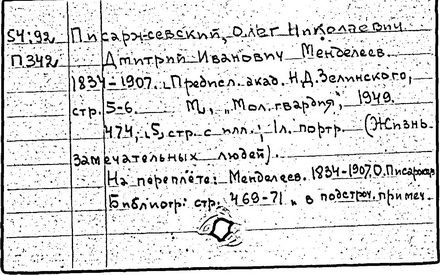 54:92 Писаржевский, Олег Николаевич
П342 Дмитрий Иванович Менделеев.
1834-1907. Предисл. акад. Н.Д. Зелинского,
стр. 5-6. М., "Мол. гвардия", 1949.
474, 5, стр. с илл.; 1л. портр. (Жизнь
замечательных людей).
На переплёте: Менделеев. 1834-1907. О. Писаржев
Библиогр: стр. 469-71 и в подстроч. примеч.